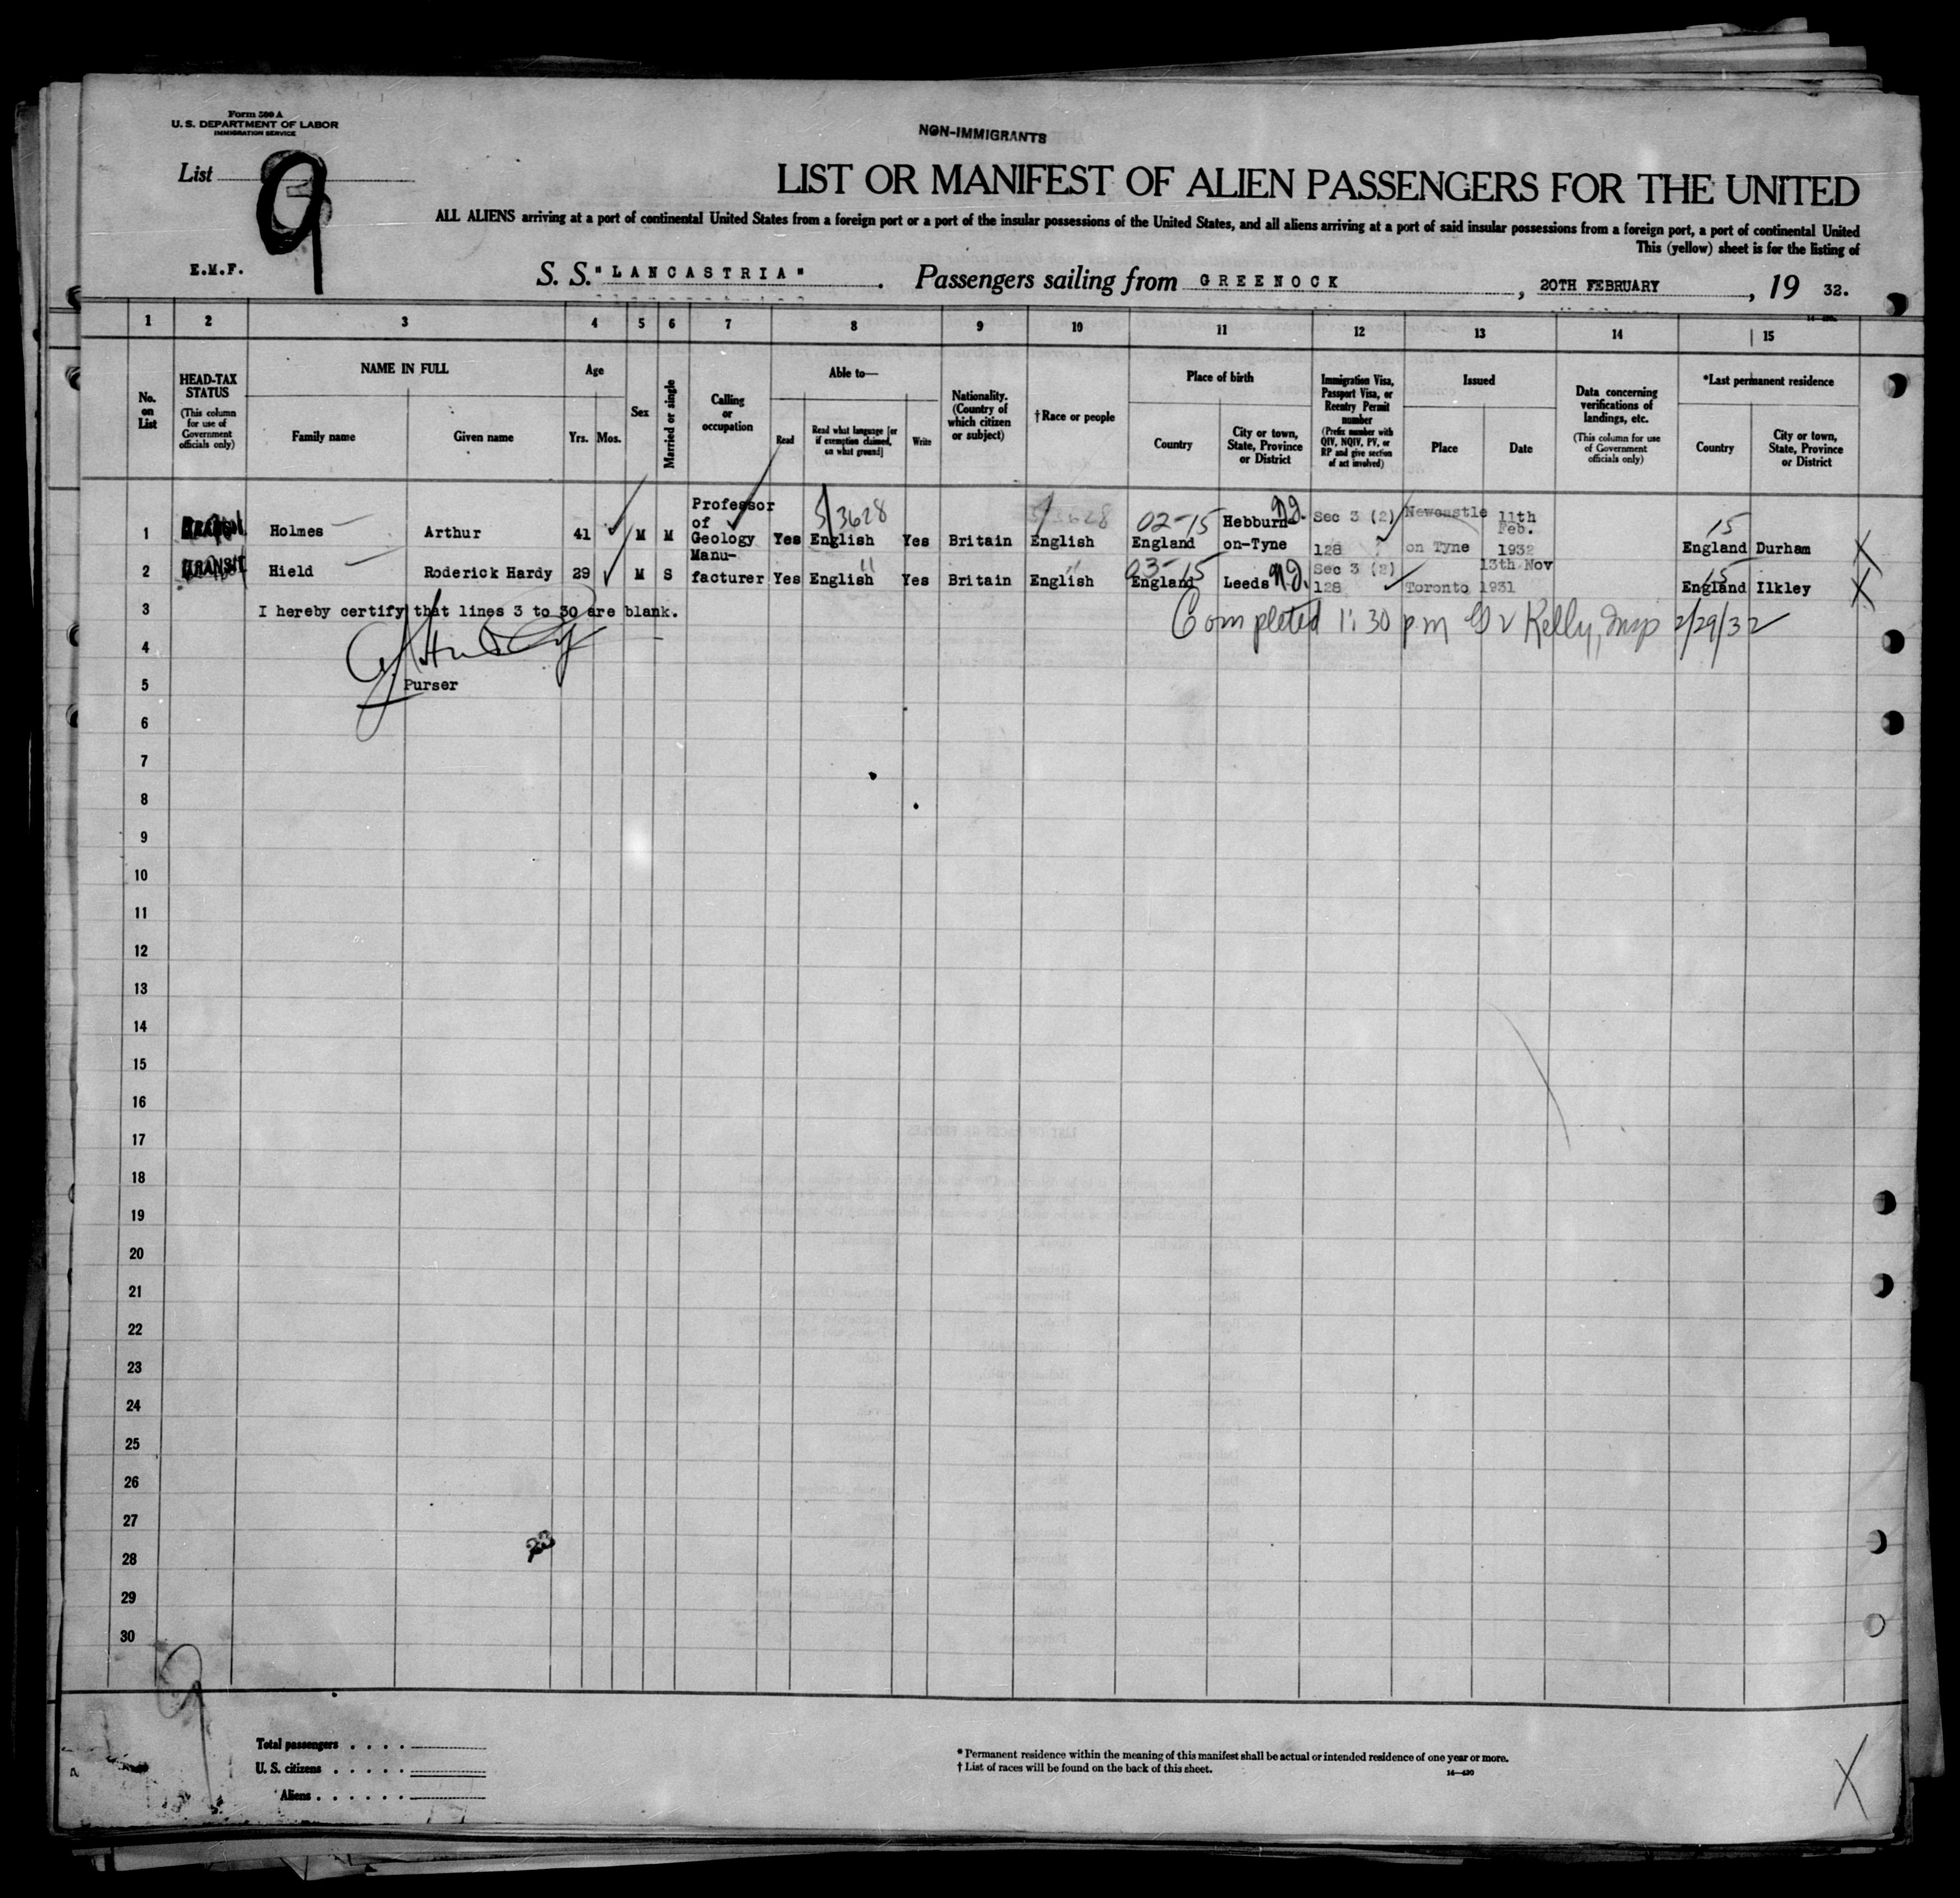 Form 500 A
U. S. DEPARTMENT OF LABOR
IMMIGRATION SERVICE
NON-IMMIGRANTS
List 9
LIST OR MANIFEST OF ALIEN PASSENGERS FOR THE UNITED
ALL ALIENS arriving at a port of continental United States from a foreign port or a port of the insular possessions of the United States, and all aliens arriving at a port of said insular possessions from a foreign port, a port of continental United
This (yellow) sheet is for the listing of
E.M.F.
S. S. "LANCASTRIA" . Passengers sailing from GREENOCK , 20TH FEBRUARY , 19 32.
1 2 3 4 5 6 7 8 9 10 11 12 13 14 15
No. on List
HEAD-TAX STATUS (This column for use of Government officials only)
NAME IN FULL
Family name Given name
Age
Yrs. Mos.
Sex
Married or single
Calling or occupation
Able to—
Read Read what language [or if exemption claimed, on what ground] Write
Nationality. (Country of which citizen or subject)
†Race or people
Place of birth
Country City or town, State, Province or District
Immigration Visa, Passport Visa, or Reentry Permit number (Prefix number with QIV, NQIV, PV, or RP and give section of act involved)
Issued
Place Date
Data concerning verifications of landings, etc. (This column for use of Government officials only)
*Last permanent residence
Country City or town, State, Province or District
5/3628 02-15 15
1 Holmes Arthur 41 M M Professor of Geology Yes English Yes Britain English England Hebburn-on-Tyne Sec 3 (2) 128 Newcastle on Tyne 11th Feb. 1932 England Durham X
03-15 15
2 TRANSIT Hield Roderick Hardy 29 M S Manu-facturer Yes English Yes Britain English England Leeds Sec 3 (2) 128 Toronto 13th Nov 1931 England Ilkley X
3 I hereby certify that lines 3 to 30 are blank.
Completed 1:30 pm Kelly, Insp 2/29/32
4
5 Purser
6
7
8
9
10
11
12
13
14
15
16
17
18
19
20
21
22
23
24
25
26
27
28
29
30
9
Total passengers . . . .
U. S. citizens . . . . .
Aliens . . . . . .
* Permanent residence within the meaning of this manifest shall be actual or intended residence of one year or more.
† List of races will be found on the back of this sheet.
14—430
X